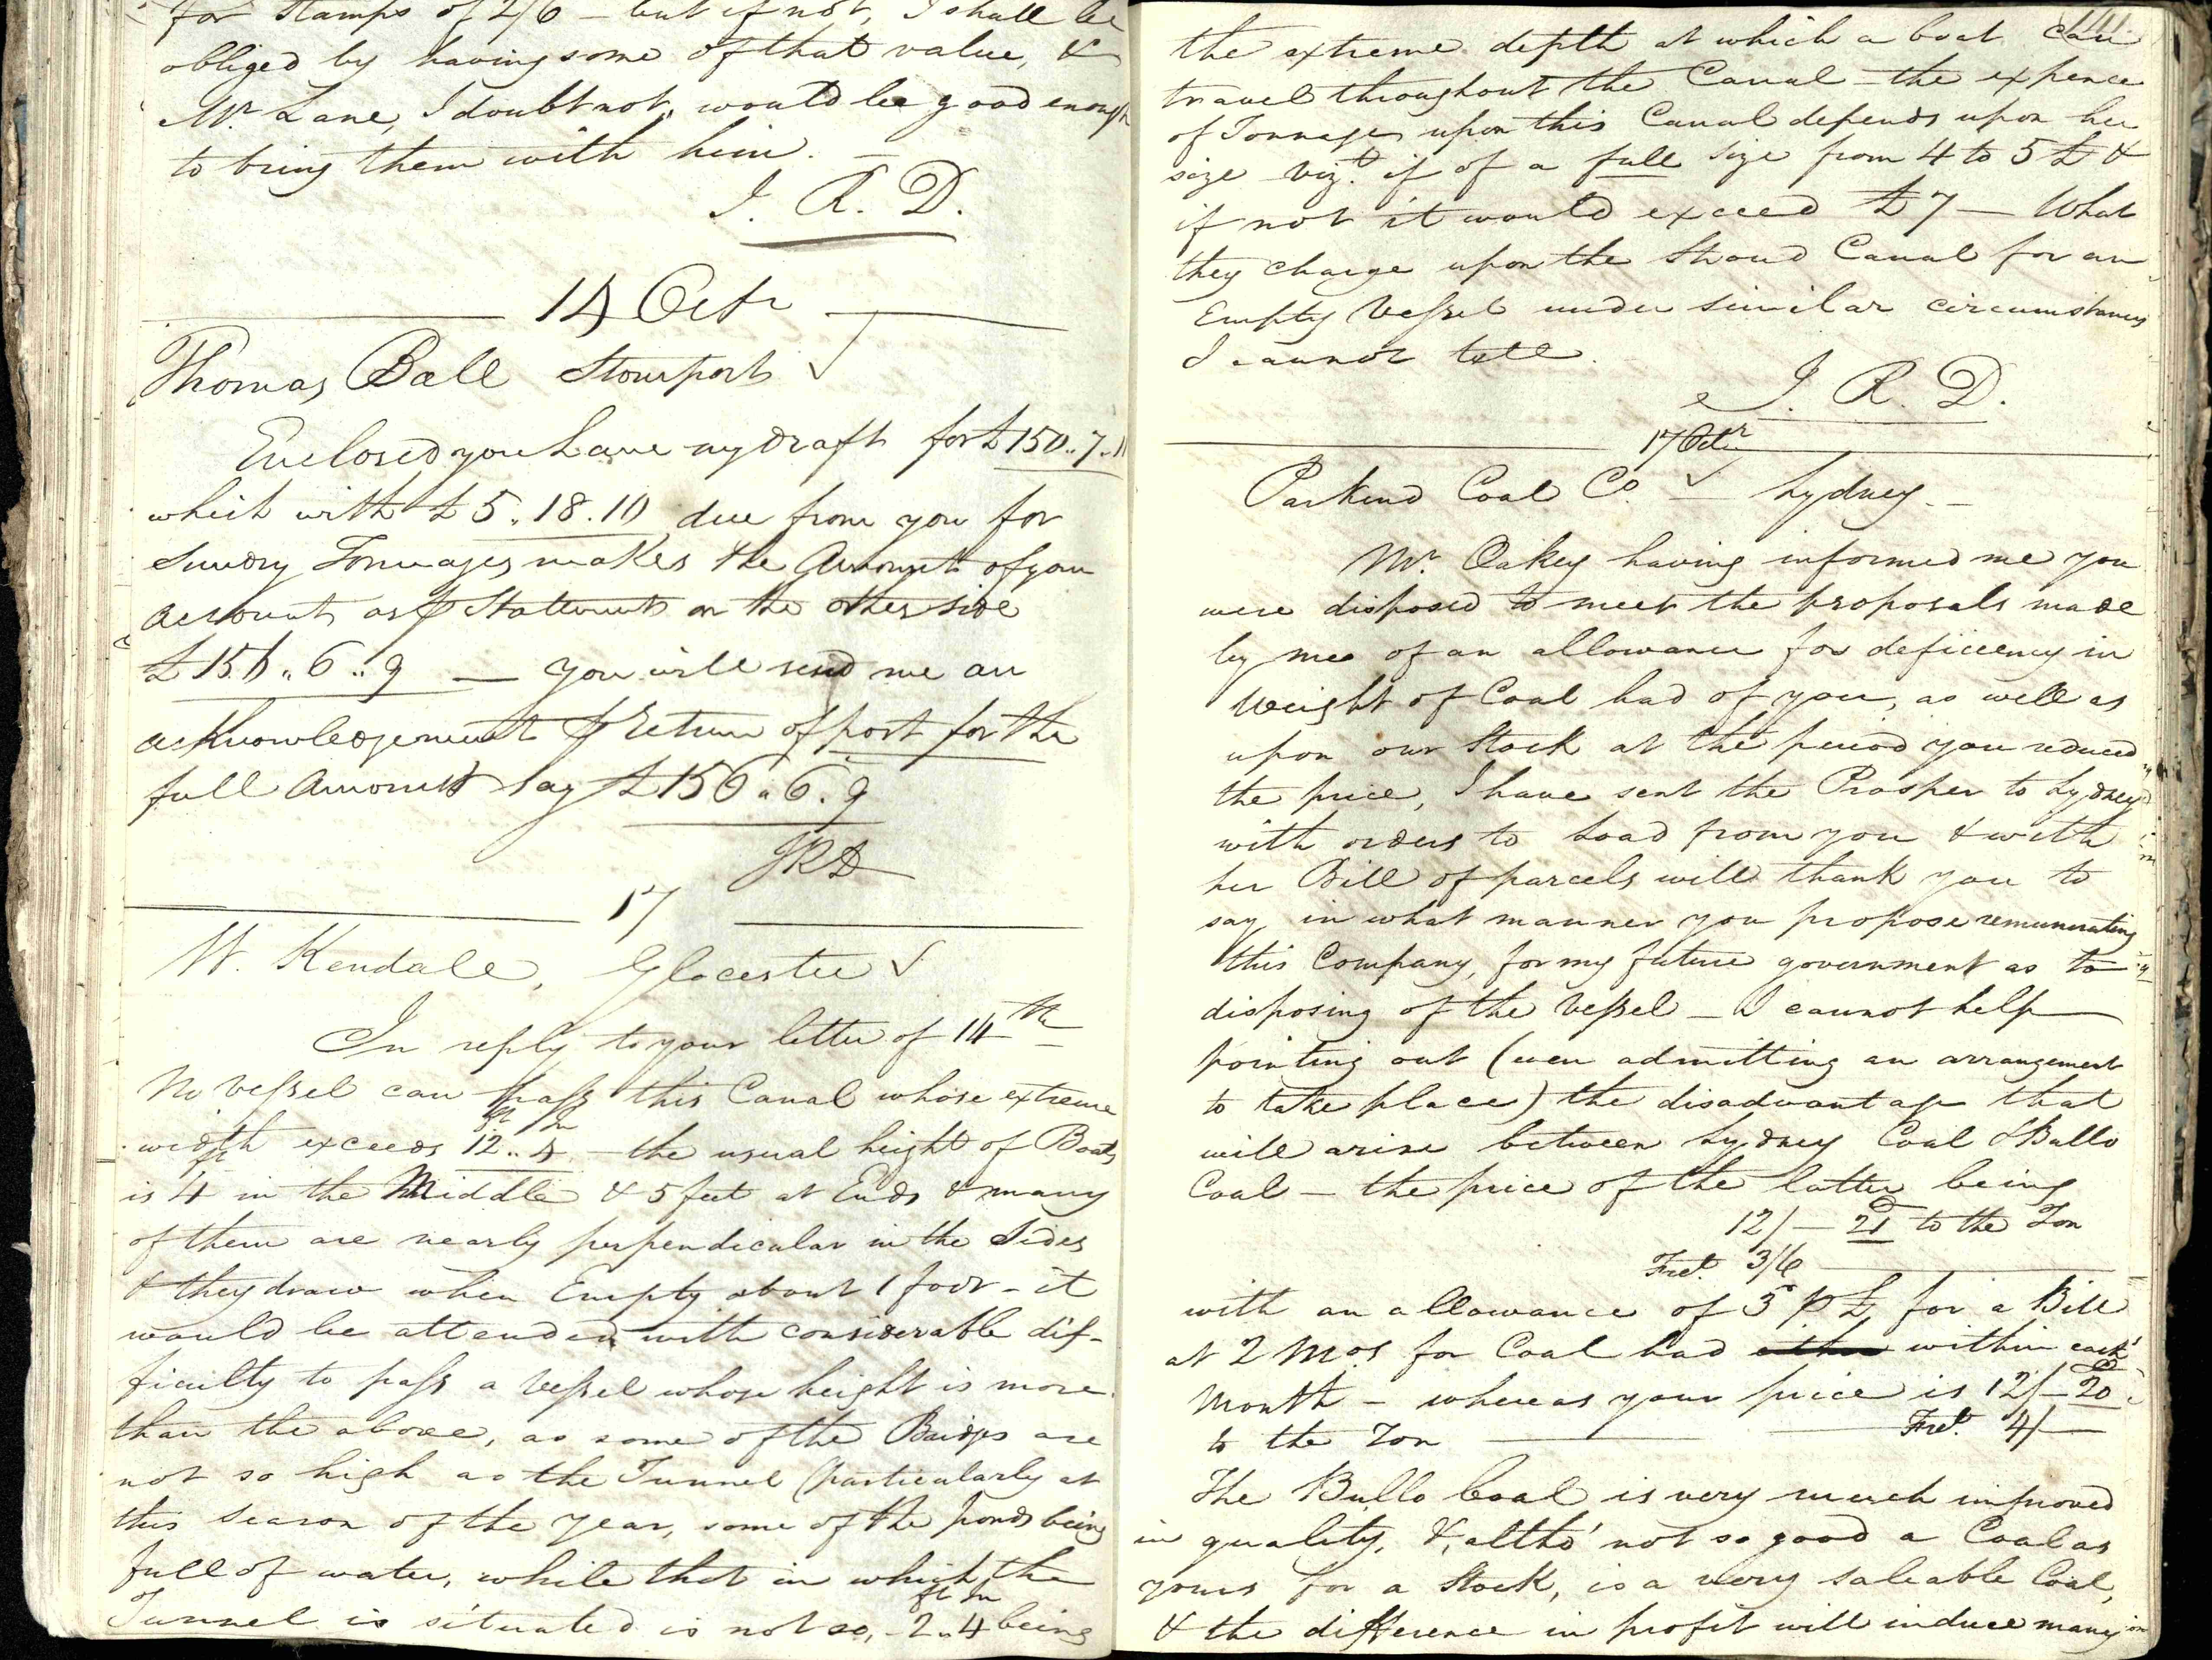 for Stamps of 2/6 — but if not, I shall be
obliged by having some of that value, &
Mr. Lane, I doubt not, would be good enough
to bring them with him. —
J. R. D.
14 Octr
Thomas Ball Stourport ✓
Enclosed you have my Draft for £150..7.11
which with £5..18.10 due from you for
Sundry Tonnages makes the Amount of your
Account as ⅌ Statement on the other side
£156..6..9 — you will send me an
acknowledgement ⅌ return of post for the
full Amount say £156..6.9
JRD
17
W. Kendall, Glocester ✓
In reply to your letter of 14th
No Vessel can pass this Canal whose extreme
width exceeds 12ft..4in — the usual height of Boats
is 4ft in the Middle & 5 feet at Ends & many
of them are nearly perpendicular in the Sides
& they draw when Empty about 1 foot — it
would be attended with considerable dif-
ficulty to pass a Vessel whose height is more
than the above, as some of the Bridges are
not so high as the Tunnel (particularly at
this Season of the Year, some of the ponds being
full of water, while that in which the
Tunnel is situated is not so, — 2ft..4in being
141
the extreme depth at which a boat can
travel throughout the Canal — the expence
of Tonnage upon this Canal depends upon her
size vizt. if of a full size from 4 to 5£ &
if not it would exceed £7 — What
they charge upon the Stroud Canal for an
Empty Vessel under similar circumstances
I cannot tell.
J. R. D.
17 Octr
Parkend Coal Co. ✓ — Lydney —
Mr. Oakey having informed me you
were disposed to meet the proposals made
by me of an allowance for deficiency in
Weight of Coal had of you, as well as
upon our Stock at the period you reduced
the price, I have sent the Prosper to Lydney
with orders to load from you & with
her Bill of parcels will thank you to
say in what manner you propose remunerating
this Company, for my future government as to
disposing of the Vessel — I cannot help
pointing out (even admitting an arrangement
to take place) the disadvantage that
will arise between Lydney Coal & Bullo
Coal — the price of the latter being
12/— 21 to the Ton
Fret. 3/6
with an allowance of 3d ⅌ £ for a Bill
at 2 Mos. for Coal had within each
Month — whereas your price is 12/— 20
to the Ton — Fret. 4/—
The Bullo Coal is very much improved
in quality, &, altho' not so good a Coal as
yours for a Stock, is a very saleable Coal,
& the difference in profit will induce many